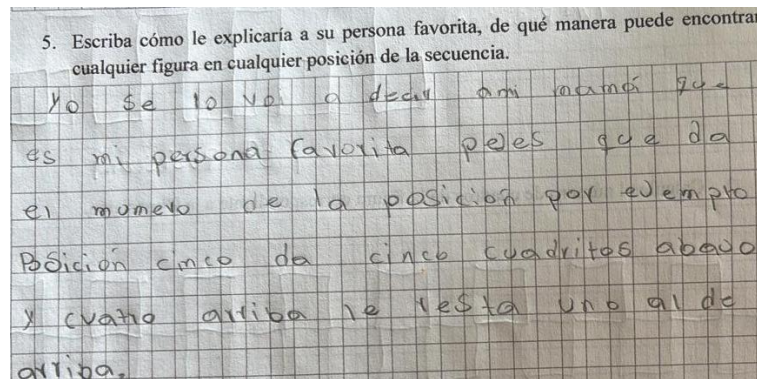 5. Escriba cómo le explicaría a su persona favorita, de qué manera puede encontrar
cualquier figura en cualquier posición de la secuencia.
yo se lo vo a decir ami mamá que
es mi persona favorita que da
el momero de la posición por evemplo
Posición cinco da cinco cuadritos abavo
y cuatro arriba le resta uno al de
arriba.